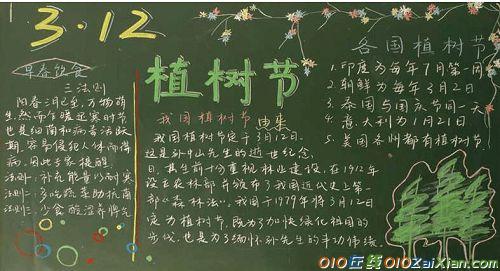 3·12
早春饮食
三法则
阳春三月已至,万物萌
生,然而乍暖还寒时节
也是细菌和病毒活跃
期,容易侵犯人体而得
病,因此专家提醒:
法则一:补充能量以耐寒
法则二:多吃蔬菜助抗菌
法则三:少食酸湿养脾气
植树节
我国植树节 由来
我国植树节定于3月12日,
这是孙中山先生的逝世纪念
日,其生前十分重视林业建设,在1912年
设立农林部并颁布了我国近代史上第一
部《森林法》,我国于1979年将3月12日
定为植树节,既为了加快绿化祖国的
步伐,也是为了缅怀孙先生的丰功伟绩.
各国植树节
1.印度为每年7月第一周
2.朝鲜为每年3月2日
3.泰国与国庆节同一天
4.意大利为1月21日
5.美国各州都有植树节
010在线 010ZaiXian.com